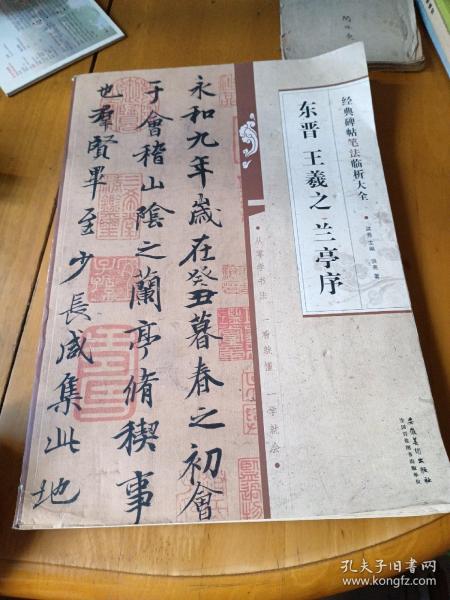 永和九年歲在癸丑暮春之初會
于會稽山陰之蘭亭脩稧事
也群賢畢至少長咸集此地
经典碑帖笔法临析大全
东晋 王羲之 兰亭序
从零学书法 一看就懂 一学就会
安徽美术出版社
孔夫子旧书网
www.kongfz.com